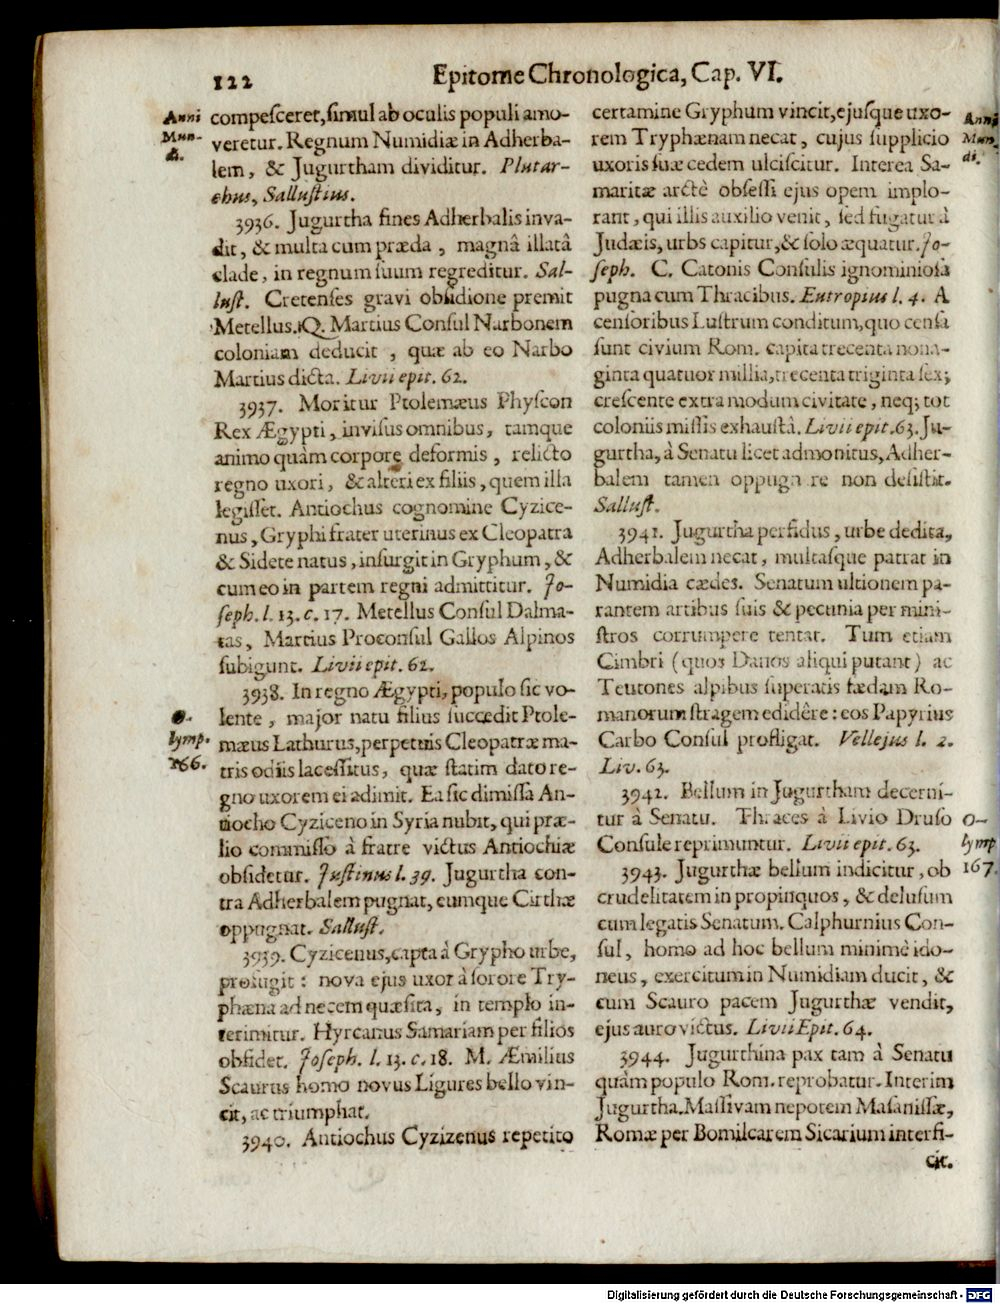 122
Epitome Chronologica, Cap. VI.
Anni
Mun-
di.
compeſceret, ſimul ab oculis populi amo-
veretur. Regnum Numidiæ in Adherba-
lem, & Jugurtham dividitur. Plutar-
chus, Salluſtius.
3936. Jugurtha fines Adherbalis inva-
dit, & multa cum præda, magnâ illatâ
clade, in regnum ſuum regreditur. Sal-
luſt. Cretenſes gravi obſidione premit
Metellus. Q. Martius Conſul Narbonem
coloniam deducit, quæ ab eo Narbo
Martius dicta. Livii epit. 62.
3937. Moritur Ptolemæus Phyſcon
Rex Ægypti, inviſus omnibus, tamque
animo quàm corpore deformis, relicto
regno uxori, & alteri ex filiis, quem illa
legiſſet. Antiochus cognomine Cyzice-
nus, Gryphi frater uterinus ex Cleopatra
& Sidete natus, inſurgit in Gryphum, &
cum eo in partem regni admittitur. Jo-
ſeph. l. 13. c. 17. Metellus Conſul Dalma-
tas, Martius Proconſul Gallos Alpinos
ſubigunt. Livii epit. 62.
O-
lymp.
166.
3938. In regno Ægypti, populo ſic vo-
lente, major natu filius ſuccedit Ptole-
mæus Lathurus, perpetuis Cleopatræ ma-
tris odiis laceſſitus, quæ ſtatim dato re-
gno uxorem ei adimit. Ea ſic dimiſſa An-
tiocho Cyziceno in Syria nubit, qui præ-
lio commiſſo à fratre victus Antiochiæ
obſidetur. Juſtinus l. 39. Jugurtha con-
tra Adherbalem pugnat, eumque Cirthæ
oppugnat. Salluſt.
3939. Cyzicenus, capta à Grypho urbe,
profugit: nova ejus uxor à ſorore Try-
phæna ad necem quæſita, in templo in-
terimitur. Hyrcanus Samariam per filios
obſidet. Joſeph. l. 13. c. 18. M. Æmilius
Scaurus homo novus Ligures bello vin-
cit, ac triumphat.
3940. Antiochus Cyzizenus repetito
Anni
Mun-
di.
certamine Gryphum vincit, ejuſque uxo-
rem Tryphænam necat, cujus ſupplicio
uxoris ſuæ cedem ulciſcitur. Interea Sa-
maritæ arctè obſeſſi ejus opem implo-
rant, qui illis auxilio venit, ſed fugatur à
Judæis, urbs capitur, & ſolo æquatur. Jo-
ſeph. C. Catonis Conſulis ignominioſa
pugna cum Thracibus. Eutropius l. 4. A
cenſoribus Luſtrum conditum, quo cenſa
ſunt civium Rom. capita trecenta nona-
ginta quatuor millia, trecenta triginta ſex;
creſcente extra modum civitate, neq; tot
coloniis miſſis exhauſtâ. Livii epit. 63. Ju-
gurtha, à Senatu licet admonitus, Adher-
balem tamen oppugn re non deſiſtit.
Salluſt.
3941. Jugurtha perfidus, urbe dedita,
Adherbalem necat, multaſque patrat in
Numidia cædes. Senatum ultionem pa-
rantem artibus ſuis & pecunia per mini-
ſtros corrumpere tentat. Tum etiam
Cimbri (quos Danos aliqui putant) ac
Teutones alpibus ſuperatis fædam Ro-
manorum ſtragem edidêre: eos Papyrius
Carbo Conſul profligat. Vellejus l. 2.
Liv. 63.
3942. Bellum in Jugurtham decerni-
tur à Senatu. Thraces à Livio Druſo
Conſule reprimuntur. Livii epit. 63.
O-
lymp
167.
3943. Jugurthæ bellum indicitur, ob
crudelitatem in propinquos, & deluſum
cum legatis Senatum. Calphurnius Con-
ſul, homo ad hoc bellum minimè ido-
neus, exercitum in Numidiam ducit, &
cum Scauro pacem Jugurthæ vendit,
ejus auro victus. Livii Epit. 64.
3944. Jugurthina pax tam à Senatu
quàm populo Rom. reprobatur. Interim
Jugurtha. Maſſivam nepotem Maſaniſſæ,
Romæ per Bomilcarem Sicarium interfi-
cit.
Digitalisierung gefördert durch die Deutsche Forschungsgemeinschaft - DFG